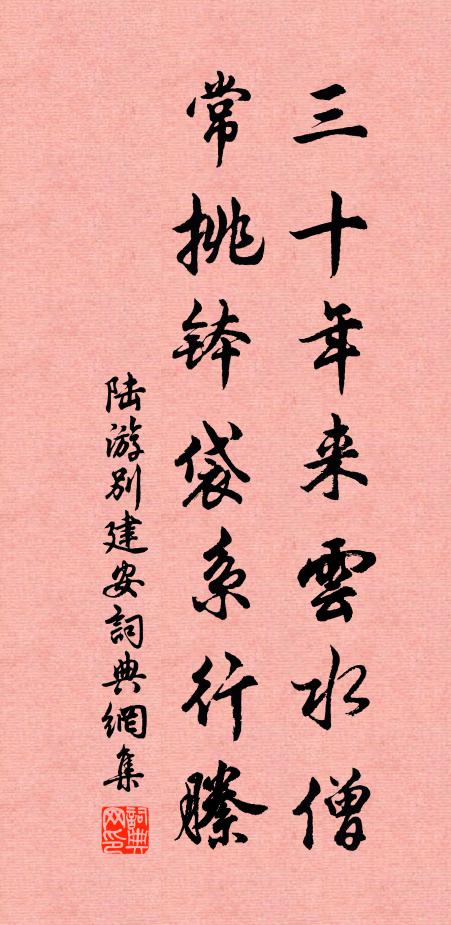 三十年来雲水僧
常挑钵袋系行縢
陆游别建安詞典網集
詞典网印